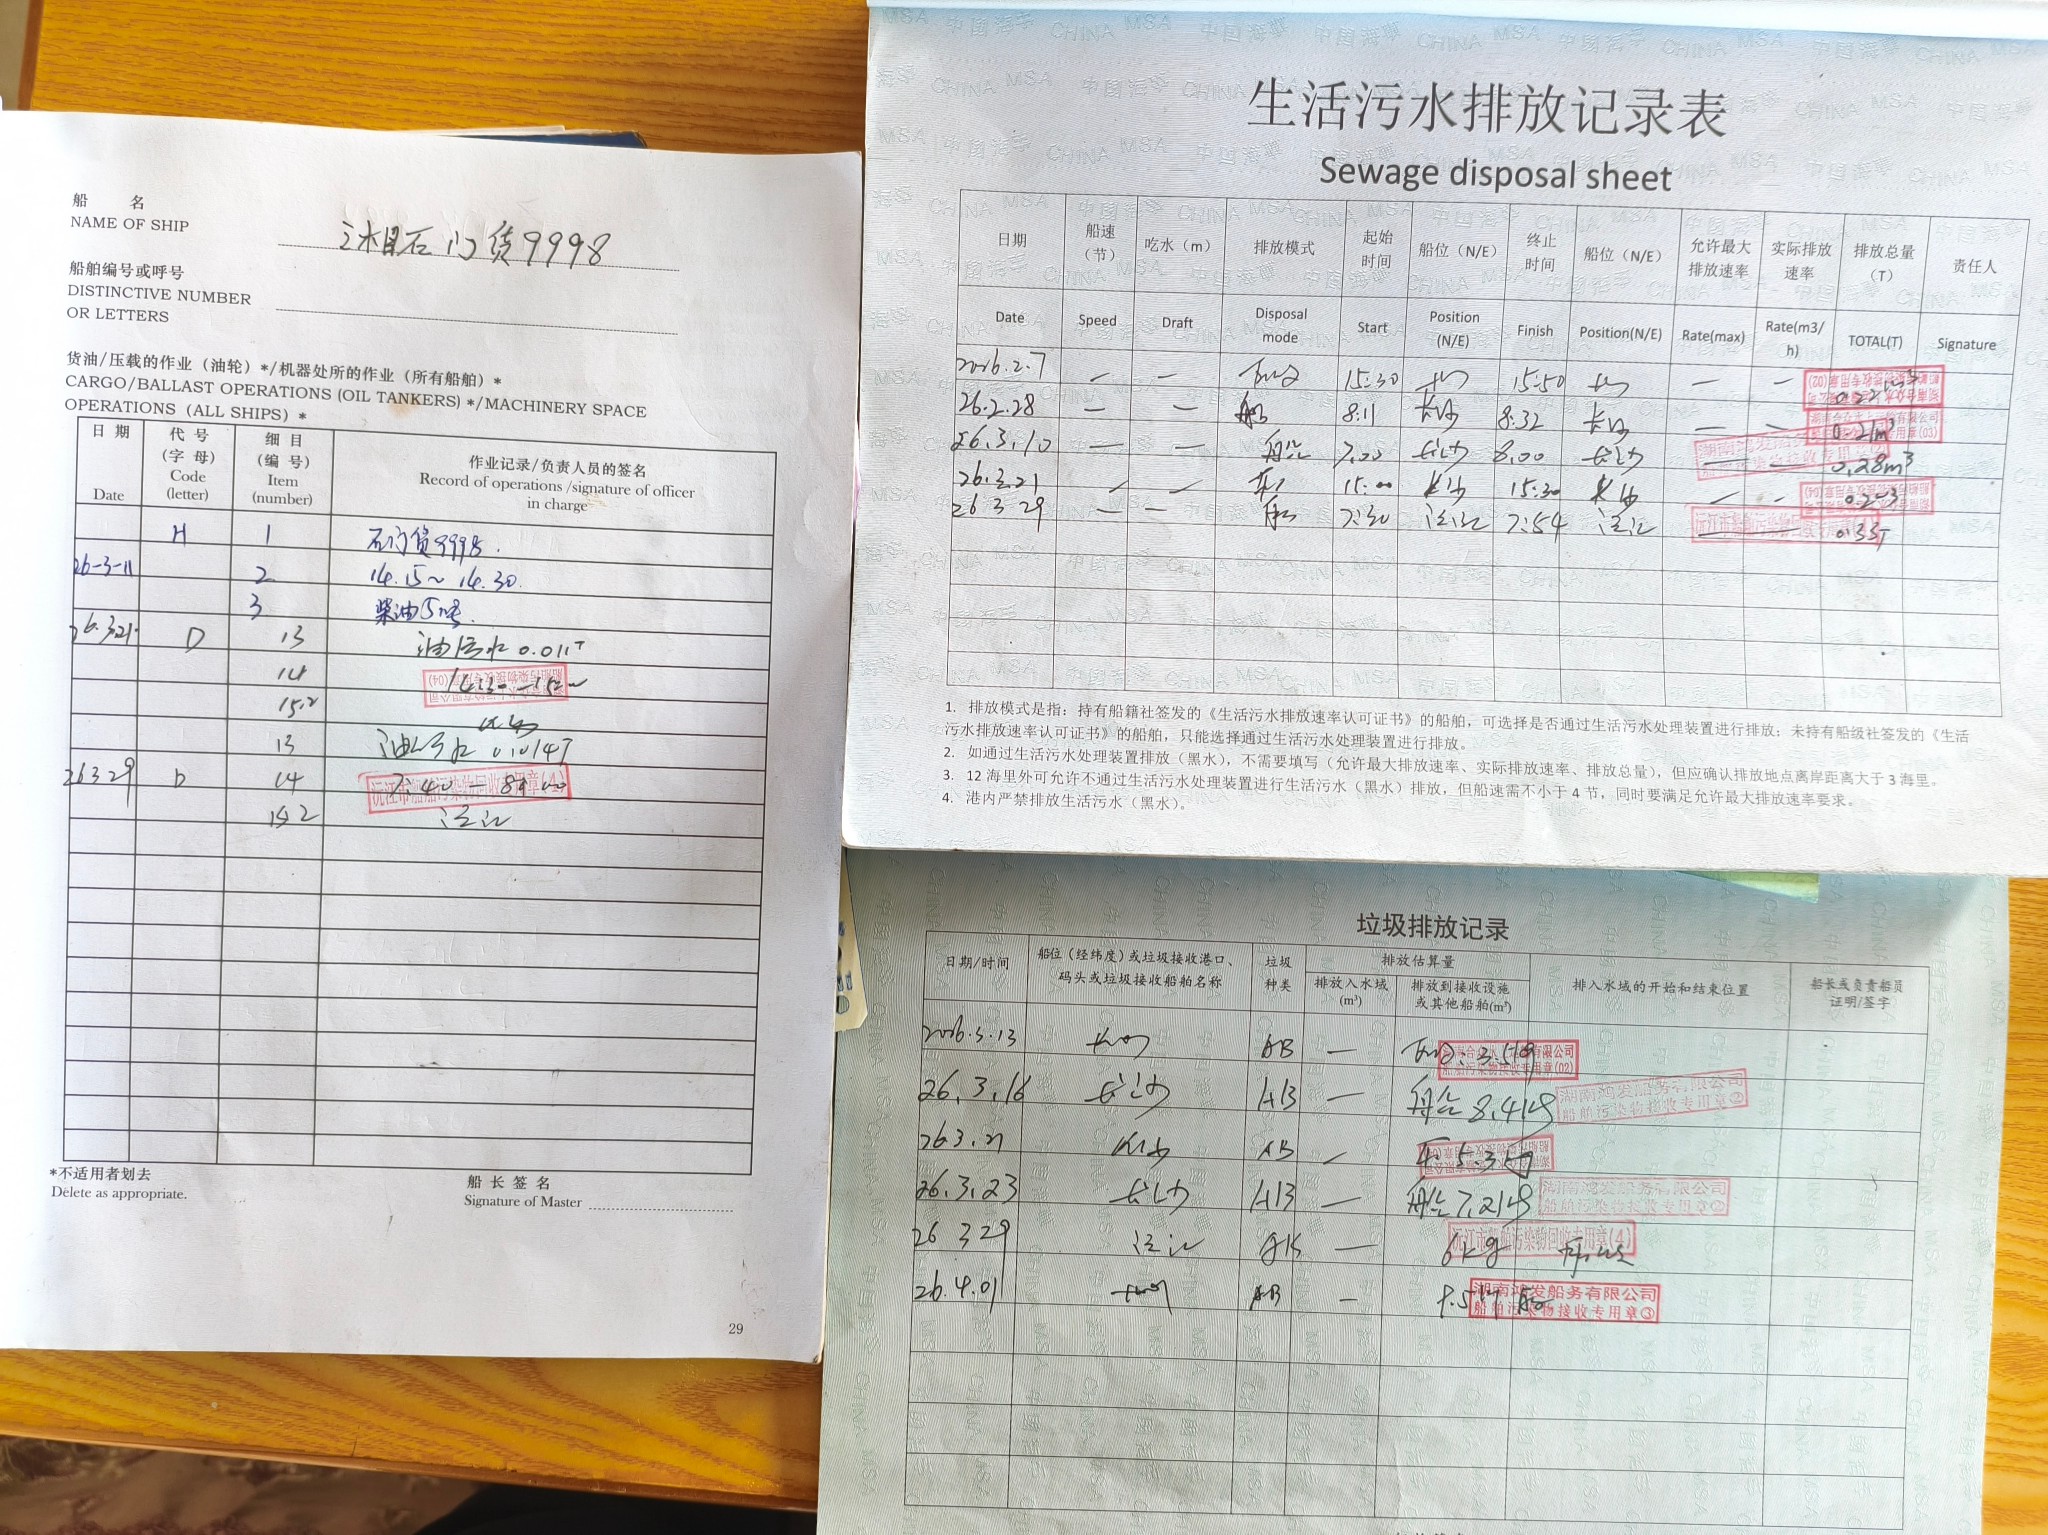 船 名
NAME OF SHIP
湘石门货9998
船舶编号或呼号
DISTINCTIVE NUMBER
OR LETTERS
货油/压载的作业（油轮）*/机器处所的作业（所有船舶）*
CARGO/BALLAST OPERATIONS (OIL TANKERS) */MACHINERY SPACE
OPERATIONS (ALL SHIPS) *
日 期 Date 代 号 (字 母) Code (letter) 细 目 (编 号) Item (number) 作业记录/负责人员的签名 Record of operations /signature of officer in charge
H 1 石门货9998.
26-3-11 2 14.15~14.30.
3 柴油5吨.
26.3.21. D 13 油污水 0.011T
14 14:30-15:00
15.2 长沙
13 油污水 0.0147
26 3 29 D 14 7:40-8:00
15 2 沅江
沅江市船舶污染物回收专用章(4)
*不适用者划去
Delete as appropriate.
船 长 签 名
Signature of Master
29
生活污水排放记录表
Sewage disposal sheet
日期 船速（节） 吃水（m） 排放模式 起始时间 船位（N/E） 终止时间 船位（N/E） 允许最大排放速率 实际排放速率 排放总量（T） 责任人
Date Speed Draft Disposal mode Start Position (N/E) Finish Position(N/E) Rate(max) Rate(m3/h) TOTAL(T) Signature
2026.2.7 — — 15:30 长沙 15:50 长沙 — — 0.22m³
26.2.28 — — 船 8:11 长沙 8:32 长沙 — — 0.21m³
26.3.10 — — 船 7:00 长沙 8:00 长沙 — — 0.28m³
26.3.21 — — 15:00 长沙 15:30 长沙 — —
26 3 29 — — 7:30 沅江 7:54 沅江 — — 0.33T
1. 排放模式是指：持有船籍社签发的《生活污水排放速率认可证书》的船舶，可选择是否通过生活污水处理装置进行排放；未持有船级社签发的《生活
污水排放速率认可证书》的船舶，只能选择通过生活污水处理装置进行排放。
2. 如通过生活污水处理装置排放（黑水），不需要填写（允许最大排放速率、实际排放速率、排放总量），但应确认排放地点离岸距离大于 3 海里。
3. 12 海里外可允许不通过生活污水处理装置进行生活污水（黑水）排放，但船速需不小于 4 节，同时要满足允许最大排放速率要求。
4. 港内严禁排放生活污水（黑水）。
垃圾排放记录
日期/时间 船位（经纬度）或垃圾接收港口、码头或垃圾接收船舶名称 垃圾种类 排放估算量 排放入水域(m³) 排放到接收设施或其他船舶(m³) 排入水域的开始和结束位置 船长或负责船员证明/签字
2026.3.13 长沙 AB —
船舶污染物接收专用章(02)
26.3.16 长沙 AB — 8.4kg
湖南鸿发船务有限公司
船舶污染物接收专用章②
26.3.21 长沙 AB —
26.3.23 长沙 AB — 7.2kg
湖南鸿发船务有限公司
船舶污染物接收专用章②
26 3 29 沅江 — 6kg
沅江市船舶污染物回收专用章(4)
26.4.01 长沙 AB —
湖南鸿发船务有限公司
船舶污染物接收专用章③